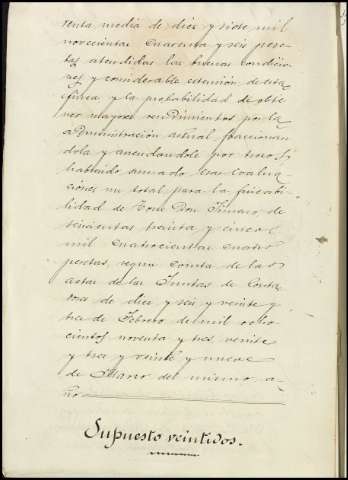 renta media de diez y siete mil
novecientas cuarenta y seis pese-
tas atendidas las buenas condicio-
nes y considerable extensión de esta
finca y la probabilidad de obte-
ner mayores rendimientos por la
administración actual fraccionan-
dola y arrendandola por trozos,
habiendo arrojado esas evalua-
ciones un total para la
de Don
seiscientas treinta y cinco
mil cuatrocientas cuatro
pesetas, según consta de las
actas de las Juntas de Conta-
de diez y seis y veinte y
tres de Febrero de mil ocho-
cientos noventa y tres veinte
y tres y veinte y nueve
de Marzo del mismo a-
ño
Supuesto veintidos.